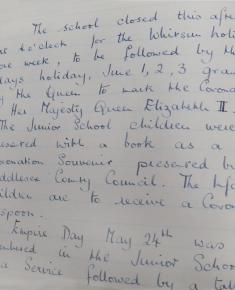 The school closed this after
at 4 o'clock for the Whitsun holi
one week, to be followed by th
days holiday, June 1, 2, 3 gran
by the Queen to mark the Corona
Her Majesty Queen Elizabeth II.
The Junior School children were
presented with a book as a
oronation Souvenir presented b
iddlesex County Council. The Inf
ildren are to receive a Coron
spoon.
Empire Day May 24th was
embered in the Junior School
a Service followed by a talk